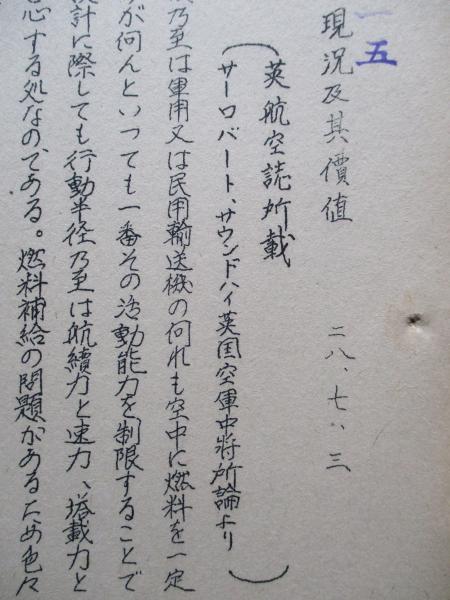 一五
現況及其價値
二八、七、三
英航空誌所載
(サーロバート、サウンドハイ英国空軍中將所論より)
乃至は軍用又は民用輸送機の何れも空中に燃料を一定
が何んといつても一番その活動能力を制限することで
計に際しても行動半径乃至は航續力と速力、塔載力と
心する処なのである。燃料補給の問題があるため色々